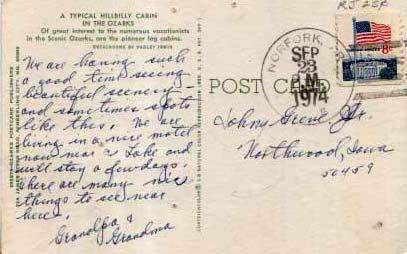 A TYPICAL HILLBILLY CABIN
IN THE OZARKS
Of great interest to the numerous vacationists
in the Scenic Ozarks, are the pioneer log cabins.
EKTACHROME BY HADLEY IRWIN
We are having such
a good time seeing
beautiful scenery
and some times spots
like this. We are
living in a nice motel
now near a Lake and
will stay a few days.
There are many nice
things to see near
here.
Grandpa &
Grandma
POST CARD
NORFORK,
SEP
23
P.M.
1974
8c
Johny Greve Jr.
Northwood, Iowa
50459